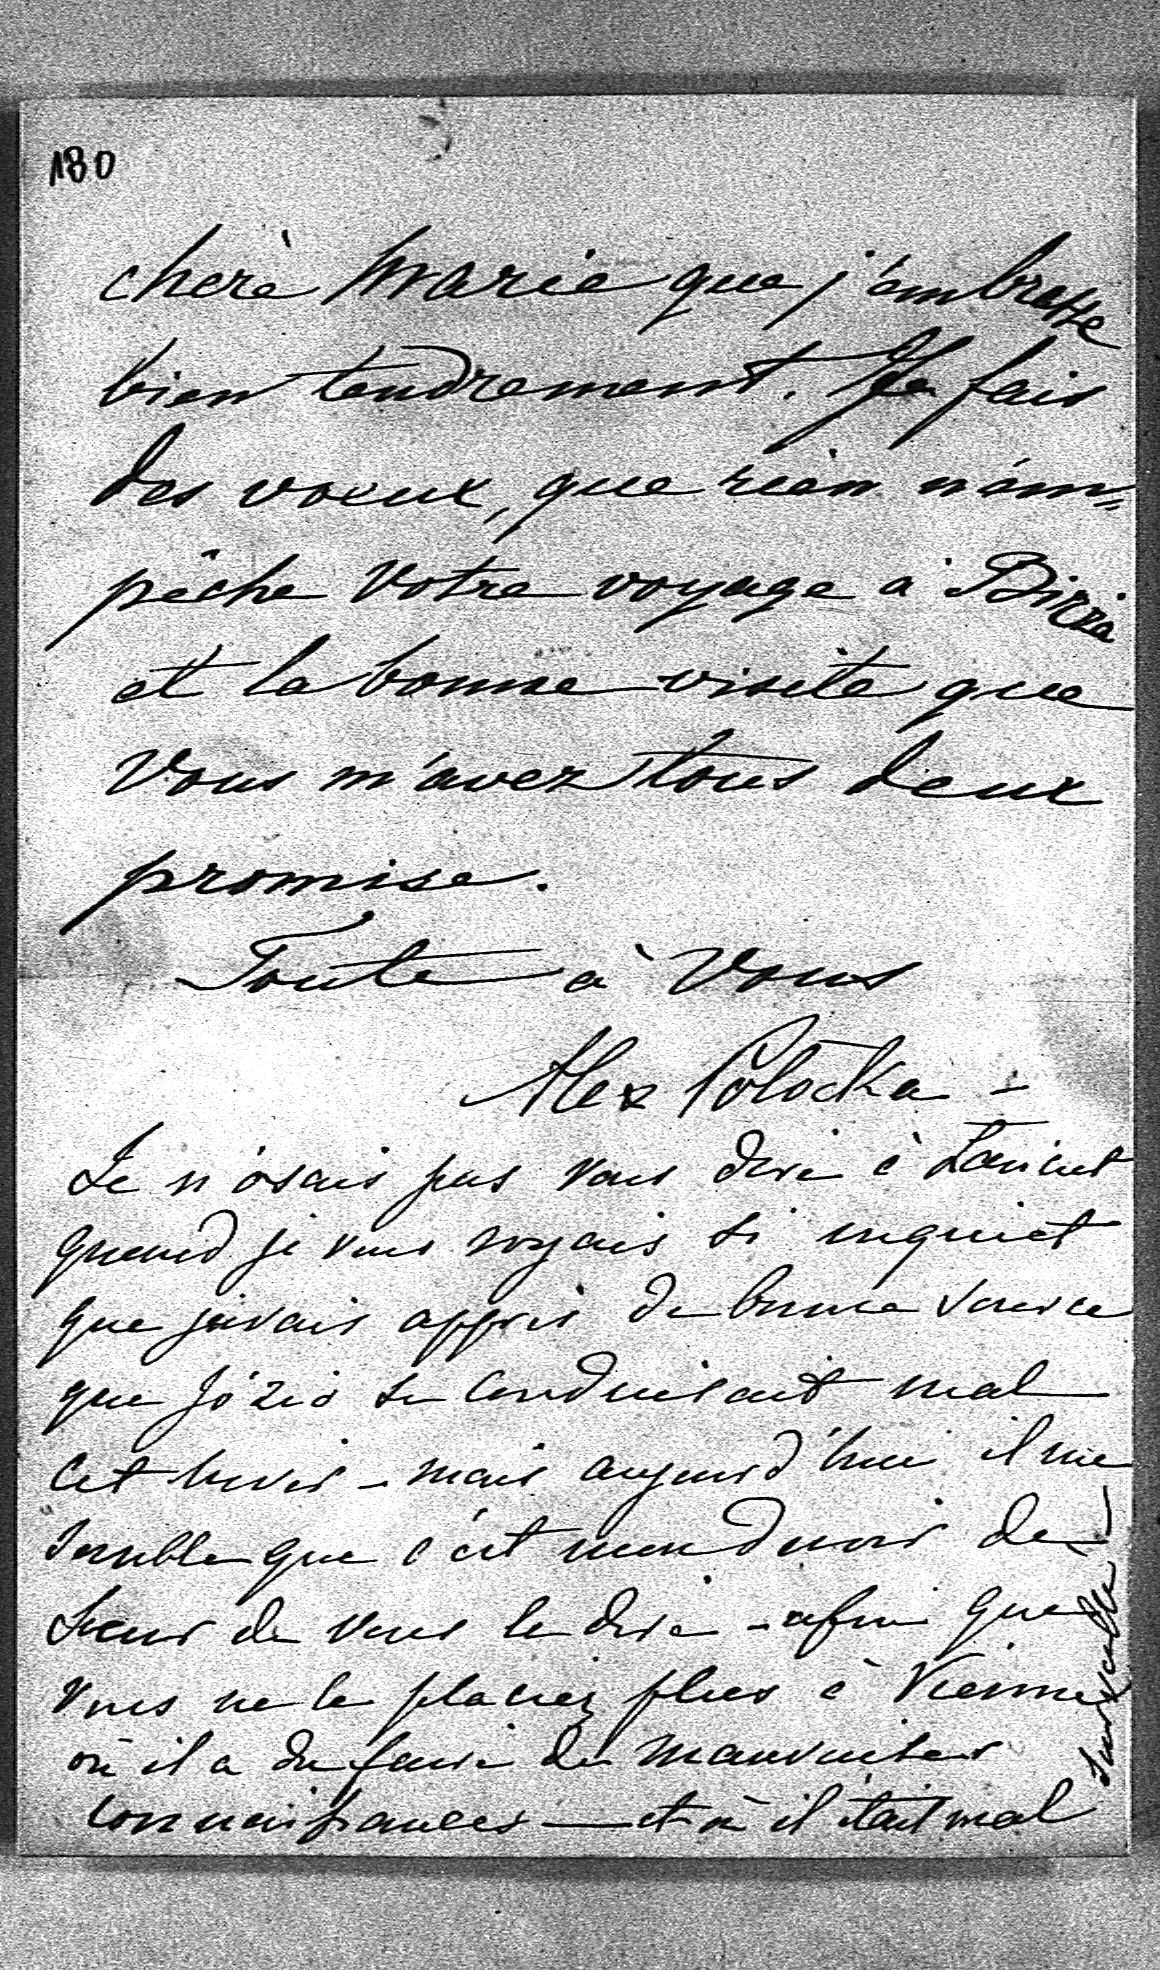 180
chère Marie que j'embrasse
bien tendrement. Je fais
des voeux, que rien n'em=
pêche votre voyage à Bircza
et la bonne visite que
Vous m'avez tous deux
promise.
Toute à Vous
Alex Potocka -
Je n'osais pas vous dire à Łańcut
quand je vous voyais si inquiet
que j'avais appris de bonne source
que Józio se conduisait mal
cet hiver - mais aujourd'hui il me
semble que c'est mon devoir de
soeur de vous le dire - afin que
vous ne le placiez plus à Vienne
où il a du faire de mauvaises
connaissances — et où il était mal
surveillé